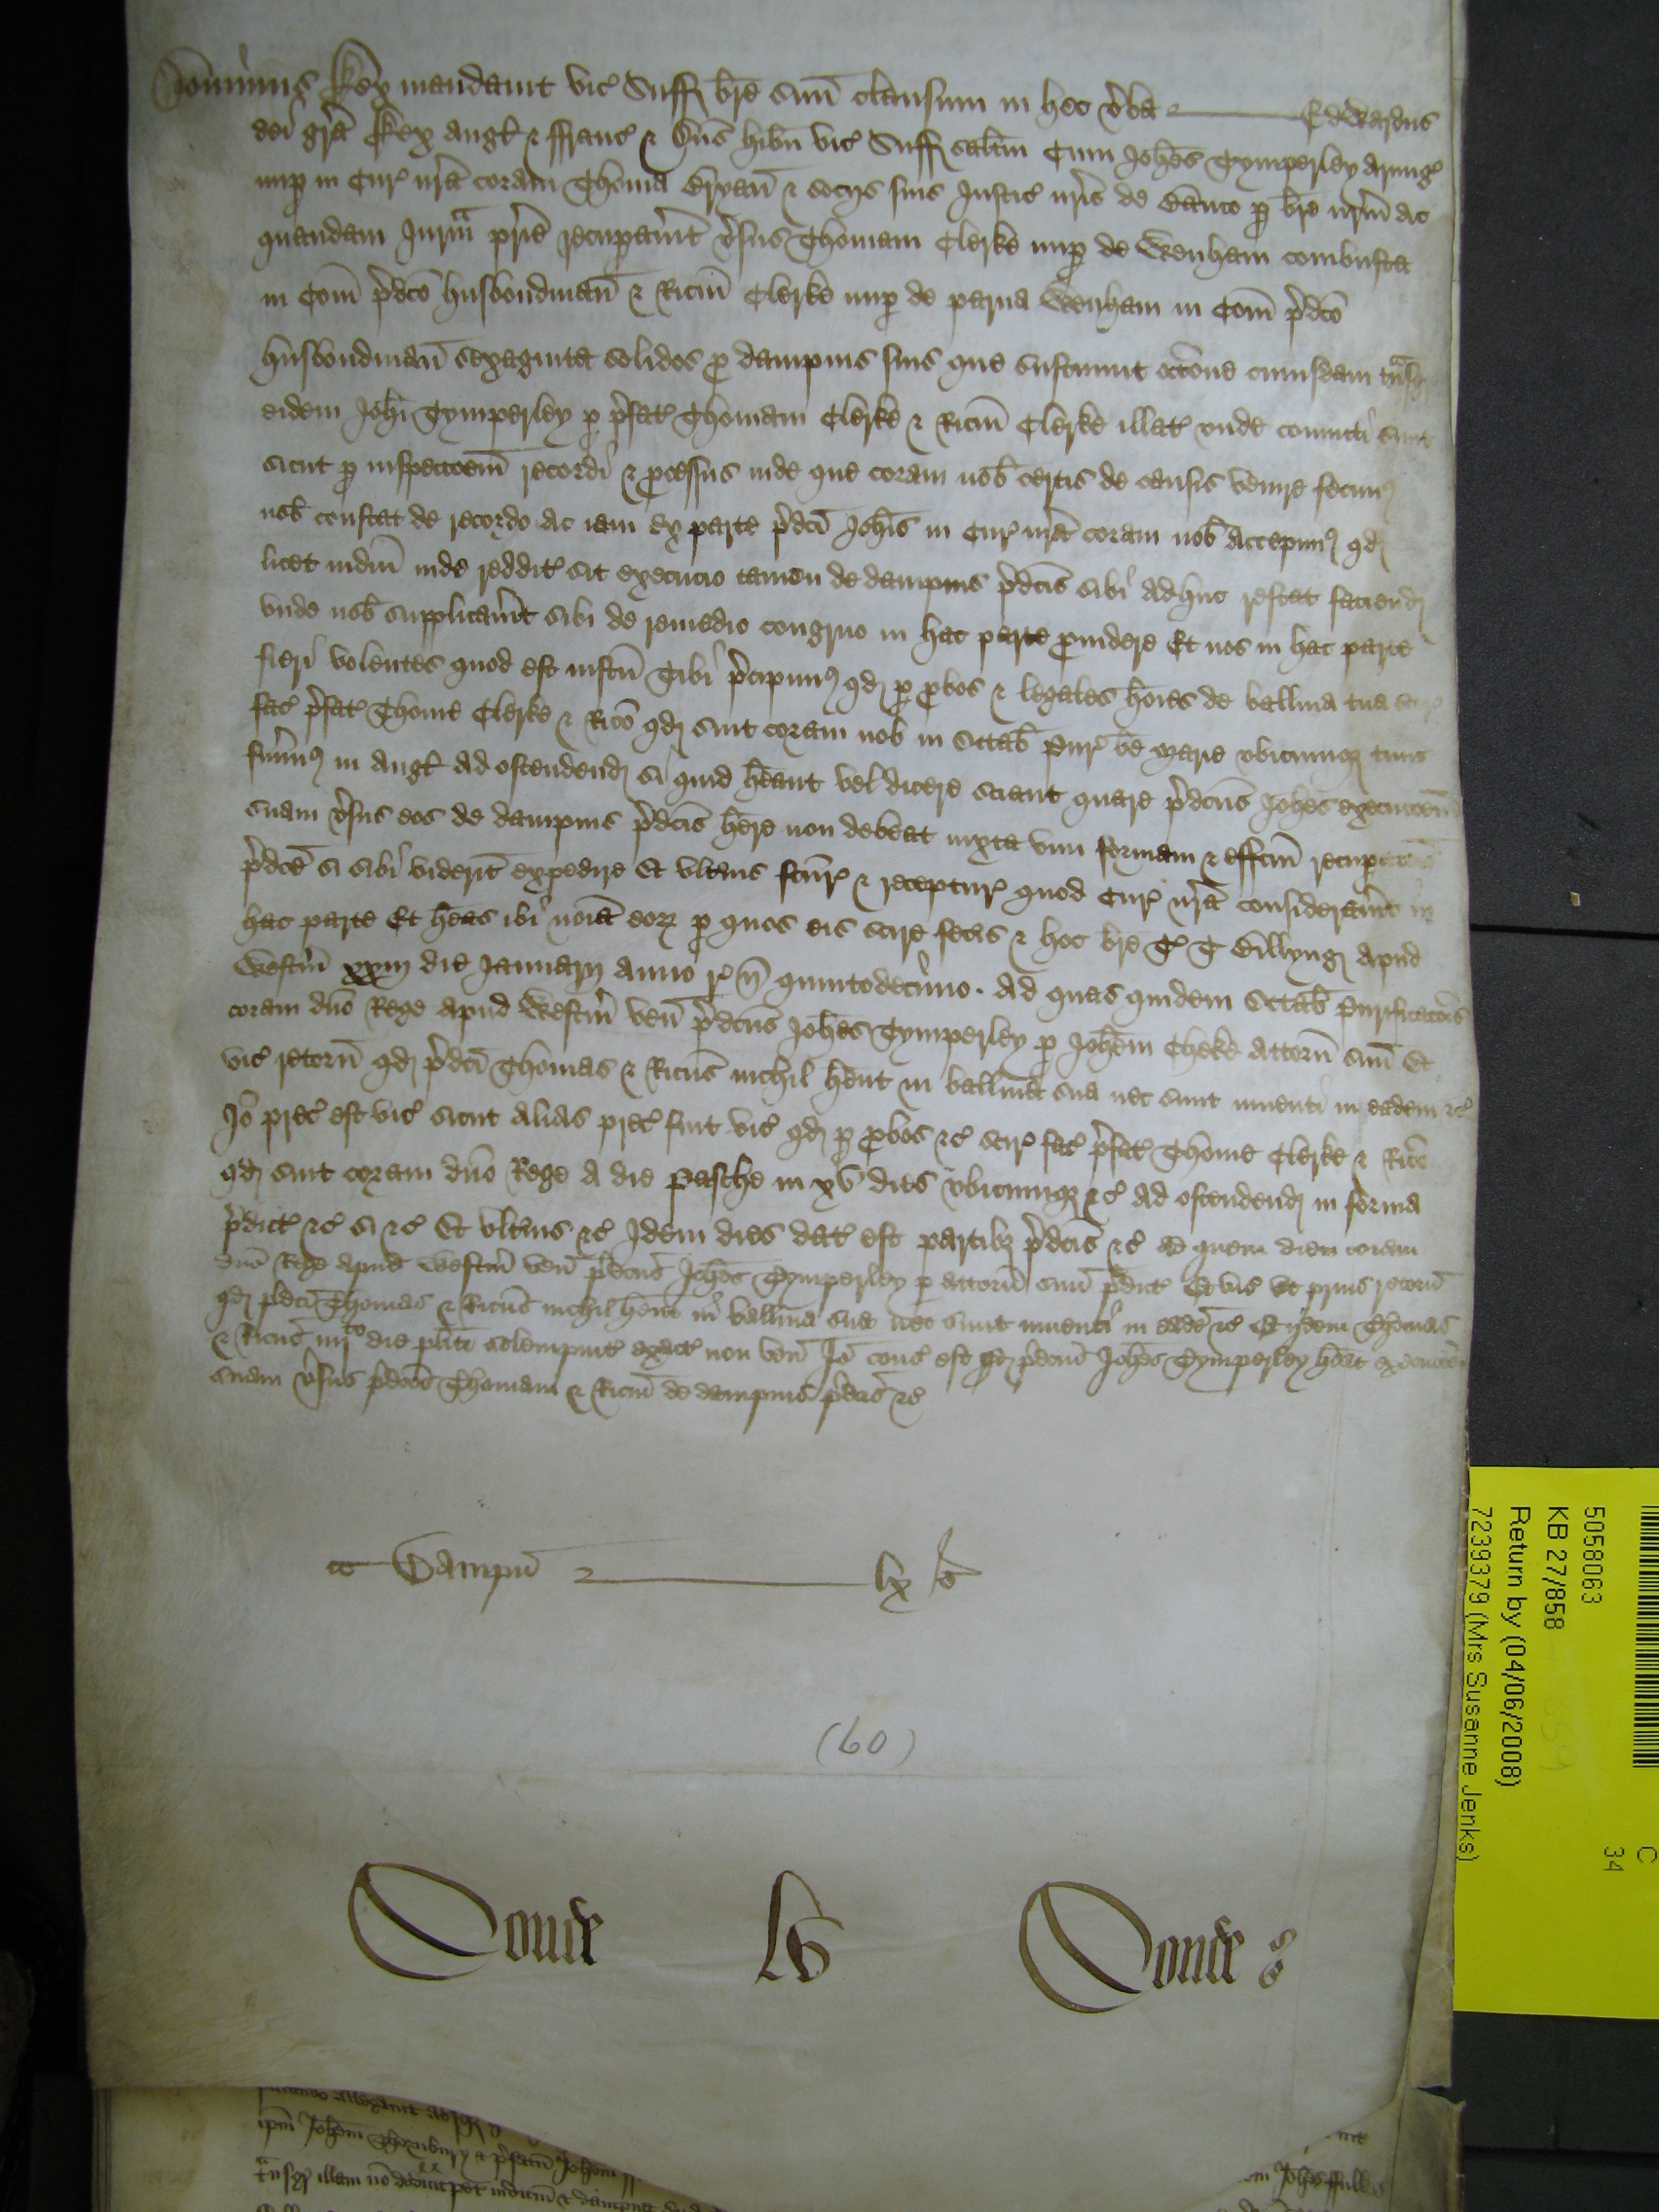 Dominus Rex mandavit vic Suff br̄e suū clausum in hec v̄ba Edwardus
dei gr̄a Rex Angl & ffranc & Dn̄s hibn̄ vic Suff salt̄m Cum Joh̄es Tymperley Armig
nup in Cur nr̄a coram Thoma Bryan̄ & sociis suis Justic nr̄is de Banco p br̄e nr̄m ac
quandam Jurat̄a pr̄ie recupavit v̄sus Thomam Clerke nup de Wenham combusta
in Com̄ p̄dc̄o husbondman̄ & Ric̄m Clerke nup de parva Wenham in Com̄ p̄dc̄o
husbondman̄ sexaginta solidos p dampnis suis que sustinuit occ̄one cuiusdam tn̄sg
eidem Joh̄i Tymperley p p̄fat Thomam Clerke & Ric̄m Clerke illat unde convicti sunt
sicut p inspecc̄oem̄ recordi & pcessus inde que coram nob̄ certis de causis venire fecim
nob̄ constat de recordo Ac iam ex parte p̄dc̄i Joh̄is in Cur nr̄a coram nob̄ Accepim qd
licet iudm̄ inde reddit sit execucio tamen de dampnis p̄dc̄is sibi Adhuc restat faciend
unde nob̄ supplicavit sibi de remedio congruo in hac parte pvidere Et nos in hac parte
fieri volentes quod est iustū Tibi p̄cipim qd p pbos & legales ho̅ies de balliva tua scir
fac p̄fat Thome Clerke & Ric̄o qd sint coram nob̄ in Octab̄ Pur be̅ Marie ubicumq tunc
fuim in Angl Ad ostendend si quid hēant vel dicere sciant quare p̄dc̄us Joh̄es execuc̄oem̄
suam v̄sus eos de dampnis p̄dc̄is hēre non debeat iuxta vim formam & effc̄m recupac̄ois
p̄dc̄e si sibi viderit expedire Et ult̄ius fc̄ur & receptur quod Cur nr̄a consideravit in
hac parte Et hēas ibi no̅ia eoz p quos eis scire fecis & hoc br̄e T T Billyng Apud
Westm̄ xxiij die Januarij Anno r n̄ quintodecimo. Ad quas quidem Octab̄ Purificac̄ois
coram dn̄o Rege apud Westm̄ ven̄ p̄dc̄us Joh̄es Tymperley p Joh̄em Cheke Attorn̄ suū Et
vic retorn̄ qd p̄dc̄i Thomas & Ric̄us nichil hēnt in balliva sua nec sunt inventi in eadem &c
Jo̅ prec est vic sicut Alias prec fuit vic qd p pbos &c scir fac p̄fat Thome Clerke & Ric̄o
qd sint coram dn̄o Rege A die Pasche in xv dies ubicumq &c Ad ostendend in forma
p̄dict &c si &c Et ult̄ius &c Idem dies dat est partibz p̄dc̄is &c Ad quem diem coram
dn̄o Rege apud Westm̄ ven̄ p̄dc̄us Joh̄es Tymperley p attorn̄ suū p̄dict Et vic ut prius retorn̄
qd p̄dc̄i Thomas & Ric̄us nichil hēnt in balliva sua nec sunt inventi in eadē &c Et ijdem Thomas
& Ric̄us iiijto die plīti solempnit exact non ven̄ Jo̅ cons est qd p̄dc̄us Joh̄es Tymperley hēat execuc̄oem̄
suam v̄sus p̄dc̄os Thomam & Ric̄m de dampnis p̄dc̄is &c
Dampn̄ lx s̄
(60)
Conde lv Conde
ip̄m Joh̄em Thornbury & p̄fatū Joh̄em
tn̄sgr illam nō
5058063
KB 27/858
Return by (04/06/2008)
7239379 (Mrs Susanne Jenks)
C
34